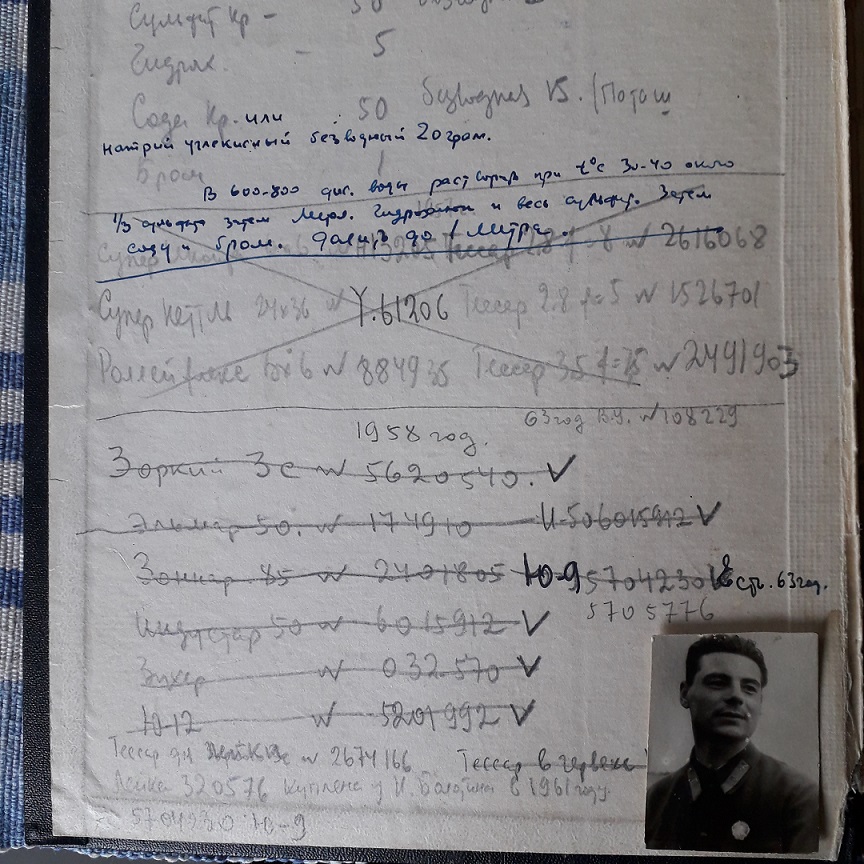 Сульфит кр - 50
Гидрох. - 5
Сода кр. или 50 безводная 15. /Поташ
натрий углекислый безводный 20 грам.
Бром 1
В 600-800 дис. воды растворив при t°c 30-40 около
1/3 сульфита затем Метол. Гидрохинон и весь сульфит. Затем
соду и бром. Долить до 1 литра.
Супер 6 Тессар 2.8 f=8 № 2616068
Супер Неттль 24х36 № Y.61206 Тессар 2.8 f=5 № 1526701
Роллейфлекс 6х6 № 884935 Тессар 3.5 f=75 № 2491903
63 год В.У. №108229
1958 год.
Зоркий 3с № 5620540. V
Эльмар 50. № 174910 И-50 6015912 V
Зоннар 85 № 2401805 Ю-9 5704230 стр. 63 год.
5705776
Индустар 50 № 6015912 V
№ 032570 V
Ю-12 № 5201992 V
Тессар для № 2674166 Тессар в
Лейка 320576 куплена у И. Болотина в 1961 году
5704230 Ю-9